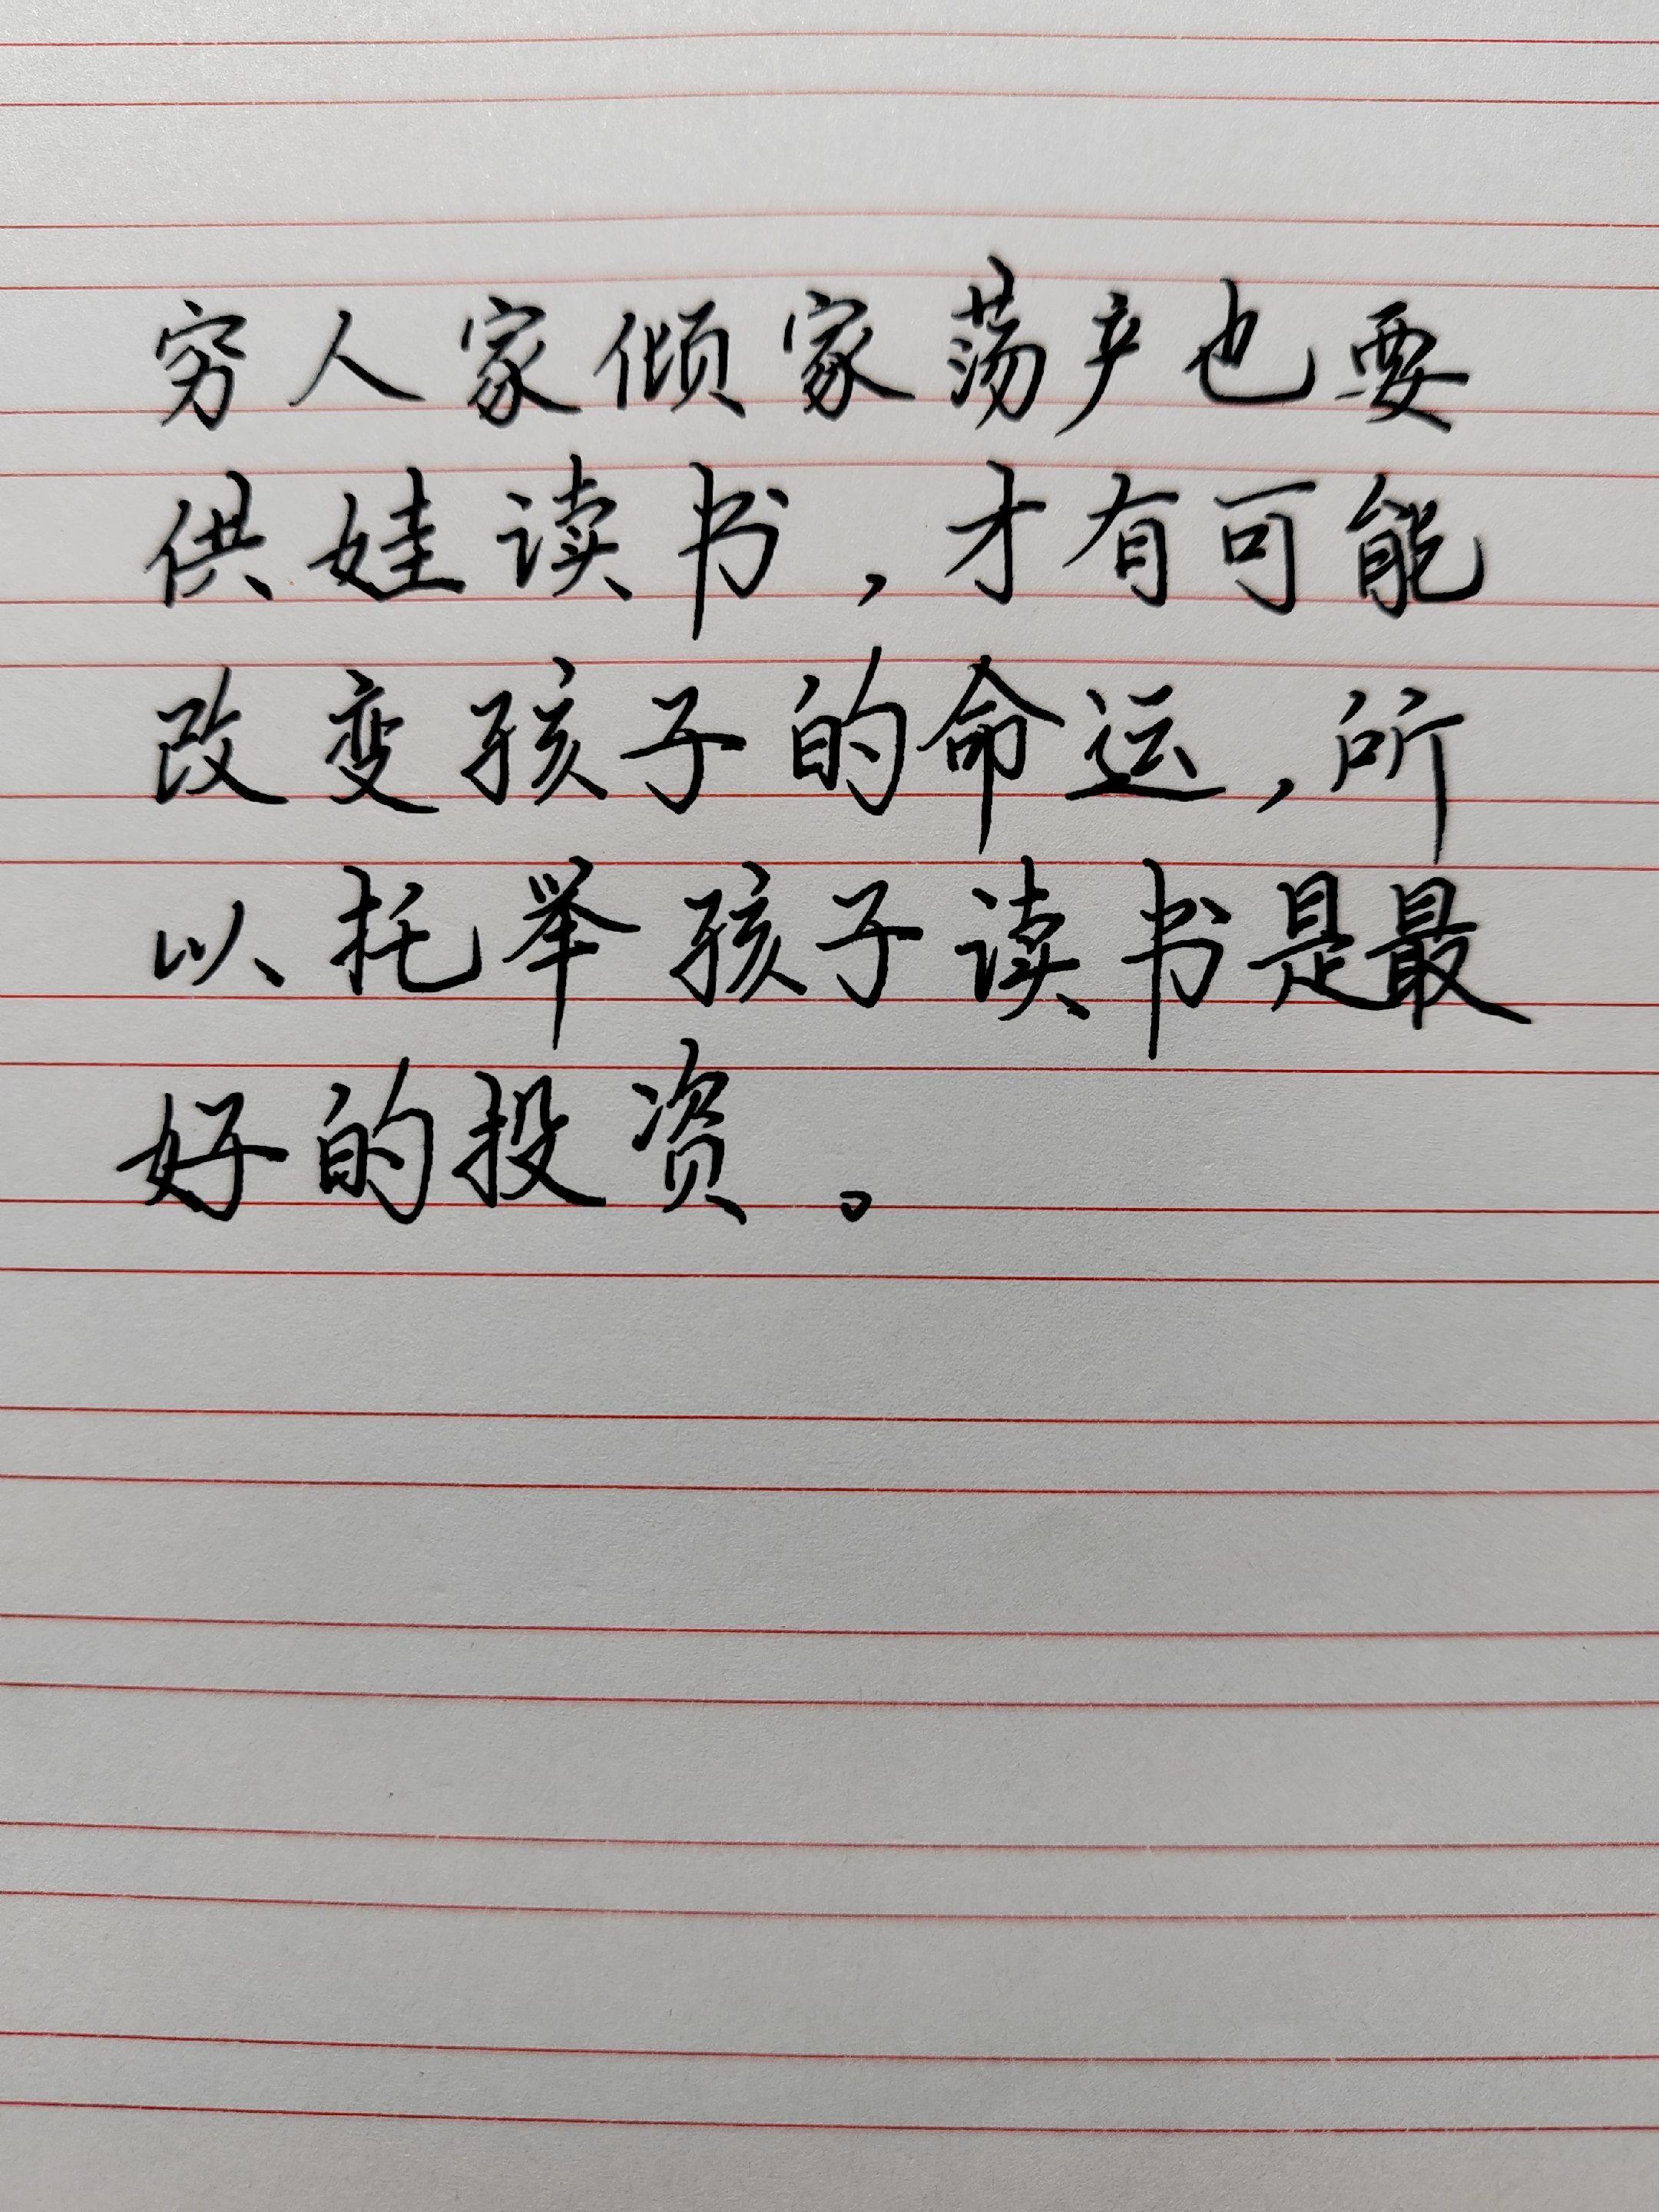 穷人家倾家荡产也要
供娃读书，才有可能
改变孩子的命运，所
以托举孩子读书是最
好的投资。